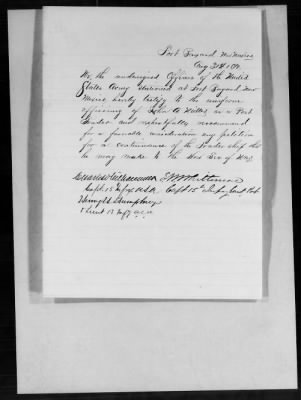 Fort Bayard New Mexico
Aug 31st
We, the undersigned Officers of the United
States Army stationed at Fort Bayard New
Mexico hereby certify to the uniform
efficiency of John A Miller as a Post
Trader and respectfully recommend
for a favorable consideration any petition
for a continuance of the Tradership that
he may make to the Hon Sec of War,
Capt. 15 Infy U.S.A.
Capt 15th Infy
Henry H Humphreys
1 Lieut 15 Infy U.S.A.